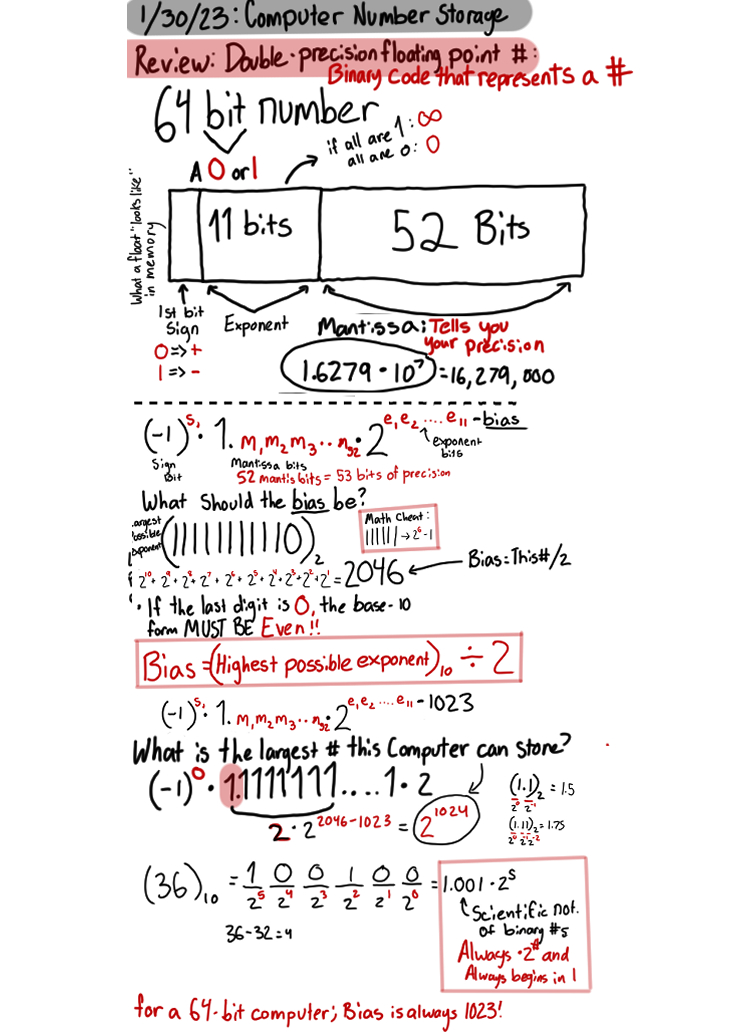 1/30/23: Computer Number Storage
Review: Double-precision floating point #:
Binary Code that represents a #
64 bit number
if all are 1: ∞
all are 0: 0
A 0 or 1
What a float "looks like" in memory
11 bits
52 Bits
1st bit
Sign
0 => +
1 => -
Exponent
Mantissa: Tells you
your precision
1.6279 · 10⁷ = 16,279,000
(-1)^s₁ · 1.m₁m₂m₃...m₅₂ · 2^(e₁e₂....e₁₁ - bias)
Sign
Bit
Mantissa bits
exponent
bits
52 mantis bits = 53 bits of precision
What Should the bias be?
argest
possible
exponent
(11111111110)₂
Math Cheat:
111111 → 2⁶-1
2¹⁰+2⁹+2⁸+2⁷+2⁶+2⁵+2⁴+2³+2²+2¹ = 2046
Bias = This #/2
· If the last digit is 0, the base-10
form MUST BE Even!!
Bias = (Highest possible exponent)₁₀ ÷ 2
(-1)^s₁ · 1.m₁m₂m₃...m₅₂ · 2^(e₁e₂....e₁₁ - 1023)
What is the largest # this Computer can store?
(-1)⁰ · 1.1111111....1 · 2
2 · 2^(2046-1023) = 2^1024
(1.1)₂ = 1.5
2⁰ 2⁻¹
(1.11)₂ = 1.75
2⁰ 2⁻¹ 2⁻²
(36)₁₀ = 1 0 0 1 0 0 = 1.001 · 2⁵
2⁵ 2⁴ 2³ 2² 2¹ 2⁰
36-32=4
Scientific not.
of binary #s
Always · 2^# and
Always begins in 1
for a 64-bit computer; Bias is always 1023!